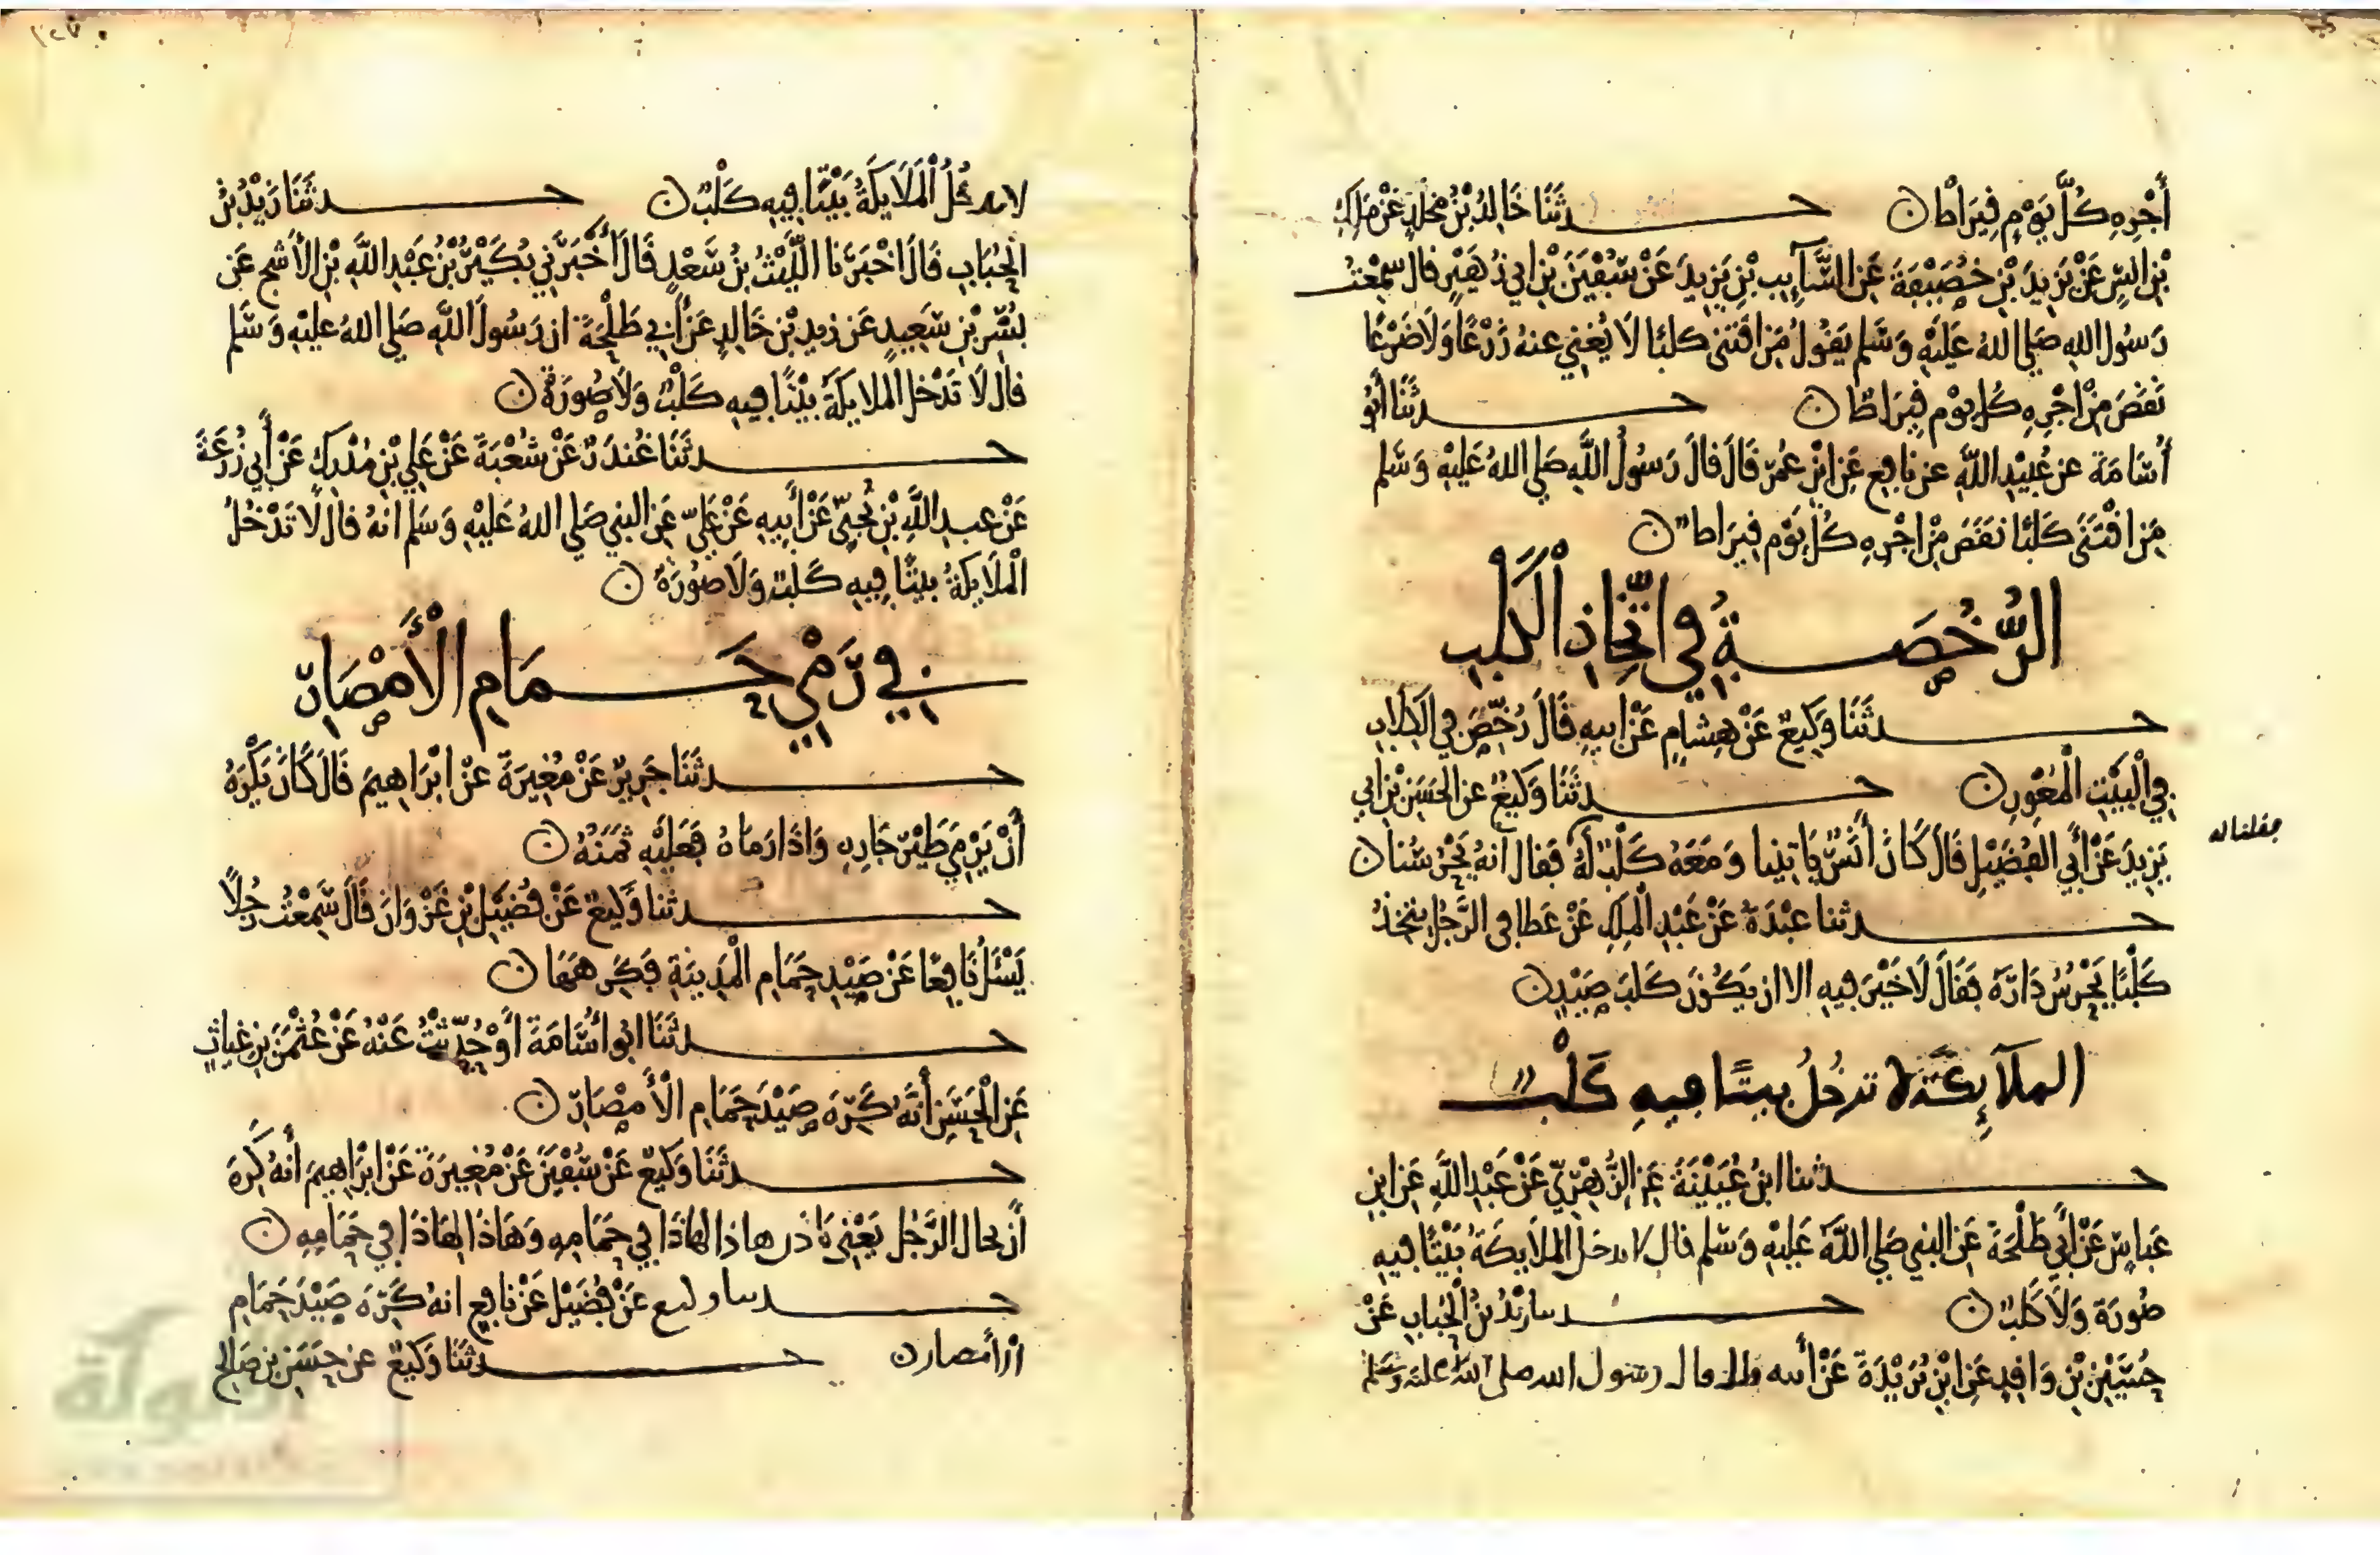 أَجْرِهِ كُلَّ يَوْمٍ قِيرَاطًا ن حـــدثَنَا خَالِدُ بْنُ مَخْلَدٍ عَنْ مَلِكِ
بْنِ أَنَسٍ عَنْ يَزِيدَ بْنِ خُصَيْفَةَ عَنِ السَّآيِبِ بْنِ يَزِيدَ عَنْ سُفْيَنَ بْنِ أبي زُهَيْرٍ قال سَمِعْتُ
رَسُولَ اللهِ صَلي اللهُ عَلَيْهِ وَسَلم يَقُولُ مَنِ اقْتَنَى كلبًا لَا يُغْنِي عنهُ زَرْعًا وَلَا ضَرْعًا
نَقَصَ مِنْ اجْرِهِ كُل يوْم قِيرَاطًا ن حـــدثَنَا أَبُو
أُسَامَةَ عن عُبَيْدِ اللَّهِ عن نافِع عَنِ ابْنِ عُمَرَ قَالَ قالَ رَسُولُ اللَّهِ صَلي اللهُ عَلَيْهِ وَسَلم
مَنِ اقْتَنَى كَلْبًا نقَصَ مِنْ اجْرِهِ كُلَّ يَوْم قِيرَاطا ن
الرُّخْصَـــةُ فِي اتِّخَاذِ الْكَلْبِ
حـــدثَنَا وَكِيعٌ عَنْ هِشَامٍ عَنْ ابيهِ قَالَ رُخِّصَ فِي الْكِلَابِ
فِي الْبَيْتِ الْمُعْوِرِ ن حـــدثَنَا وَكِيعٌ عن الحَسَنِ بْنِ ابي
يَزِيدَ عَنْ أَبِي الفُضَيْلِ قَالَ كَانَ أَنَسٌ يَاتِينا وَمَعَهُ كَلْبٌ لَهُ فقال انهُ يَحْرُسُنا ن
فقلنا له
حـــدثنا عَبْدَةُ عَنْ عَبْدِ المَلِكِ عَنْ عَطا في الرَّجُلِ يتخذُ
كَلْبًا يَحْرُسُ دَارَهُ فَقَالَ لَا خَيْرَ فِيهِ الا ان يَكُونَ كَلْبَ صَيْدٍ ن
الملآئِكَةُ لا تدخُلُ بيتًا فِيهِ كَلْبٌ
حـــدثنا ابنُ عُيَيْنَةَ عَنِ الزُّهْرِيِّ عَنْ عُبَيْدِ اللَّهِ عَنِ ابنِ
عَباسٍ عَنْ أَبِي طَلْحَةَ عَنِ النبي صَلي اللَّهُ عَلَيْهِ وَسَلم قال لا تدخل الملَايِكَةُ بَيْتًا فيهِ
صُورَة وَلَا كَلْبٌ ن حـــدثنا زَيْدُ بْنُ الْحُبَابِ عَنْ
حُسَيْنِ بْنِ وَاقِدٍ عَنِ ابْنِ بُرَيْدَةَ عَنْ أبيه قال قال رسول الله صلى الله عليه وسلم
لا تدخُلُ الْمَلَايِكَةُ بَيْتًا فِيهِ كَلْبٌ ن حـــدثَنَا زَيْدُ بْنُ
الحُبَابِ قَالَ اخْبَرَنَا اللَّيْثُ بْنُ سَعْدٍ قَالَ أَخْبَرَنِي بُكَيْرُ بْنُ عَبْدِ اللَّهِ بْنِ الأَشَجِّ عَنْ
بُسْرِ بْنِ سَعِيدٍ عَن زيدِ بْنِ خَالِدٍ عَنْ أَبِي طَلْحَةَ ان رَسُولَ اللَّهِ صَلي اللهُ عليْهِ وَسَلم
قال لَا تَدْخل الملايكَةُ بيْتًا فِيهِ كَلْبٌ وَلَا صُورَةٌ ن
حـــدثَنَا غُندَرٌ عَنْ شُعْبَةَ عَنْ عَلِي بْنِ مُدْرِكٍ عَنْ أَبِي زُرْعَةَ
عَنْ عبدِ اللَّهِ بْنِ نُجَيٍّ عَنْ أَبِيهِ عَنْ عَلِيٍّ عَنِ النبي صَلي اللهُ عَلَيْهِ وَسَلم انهُ قال لَا تَدْخُلُ
الْمَلَايكَةُ بيتًا فِيهِ كَلبٌ وَلَا صُورَةٌ ن
فِي رَمْيِ حَـــمَامِ الْأَمْصَارِ
حـــدثَنَا جَرِيرٌ عَنْ مُغِيرَةَ عَنْ ابْرَاهِيمَ قَالَ كَانَ يَكْرَهُ
أَنْ يَرْمِيَ طَيْرَ جَارِهِ وَاذَا رَمَاهُ فَعَلَيْهِ ثَمَنُهُ ن
حـــدثنا وَكيعٌ عَنْ فُضَيْلِ بْنِ غَزْوَانَ قَالَ سَمِعْتُ رَجُلًا
يَسْئَلُ نَافِعًا عَنْ صَيْدِ حَمَامِ الْمَدِينَةِ فَكَرِهَهَا ن
حـــدثَنَا ابُو اُسَامَةَ أَوْ حُدِّثْتُ عَنْهُ عَنْ عُثْمَنَ بْنِ غِيَاثٍ
عَنِ الْحَسَنِ أَنَّهُ كَرِهَ صَيْدَ حَمَامِ الْأَمْصَارِ ن
حـــدثَنَا وَكِيعٌ عَنْ سُفْيَنَ عَنْ مُغِيرَةَ عَنْ ابْرَاهِيمَ أَنهُ كَرِهَ
أَنْ الرَّجُل يَعْنِي هاذا لهاذَا فِي حَمَامِهِ وَهَاذَا لهَاذَا فِي حَمَامِهِ ن
حـــدثنا وكيع عَنْ فُضَيْل عَنْ نافِع انهُ كَرِهَ صَيْدَ حَمَامِ
الْأَمصار ن حـــدثَنَا وَكِيعٌ عن حَسَنِ بْنِ صَالِحٍ